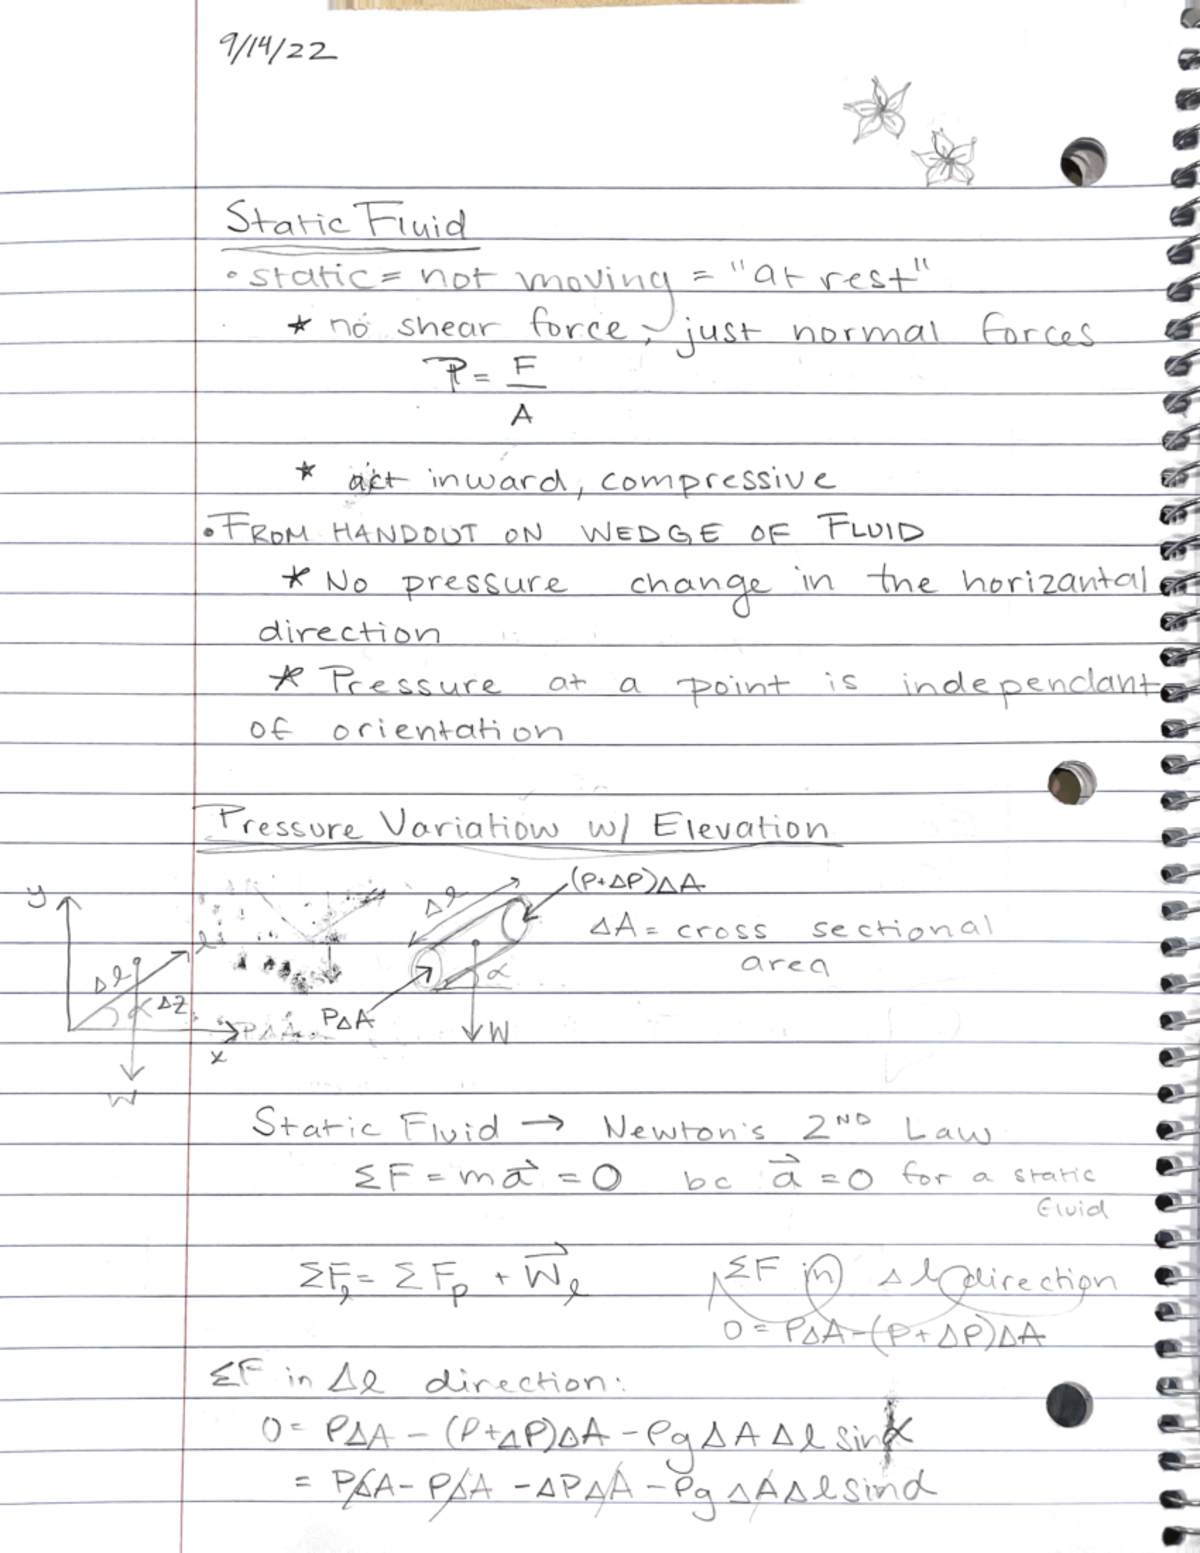 9/14/22
Static Fluid
• static = not moving = "at rest"
* no shear force, just normal forces
P = F
A
* act inward, compressive
• FROM HANDOUT ON WEDGE OF FLUID
* No pressure change in the horizantal
direction
* Pressure at a point is independant
of orientation
Pressure Variation w/ Elevation
y
Δl
l
α ΔZ
x
W
Δl
(P+ΔP)ΔA
PΔA
α
W
ΔA = cross sectional
area
Static Fluid → Newton's 2ND Law
ΣF = ma⃗ = 0 bc a⃗ = 0 for a static
fluid
ΣFₗ = ΣFₚ + W⃗ₗ
ΣF in Δl direction
0 = PΔA-(P+ΔP)ΔA
ΣF in Δl direction:
0 = PΔA - (P+ΔP)ΔA - ρgΔAΔl sinα
= PΔA - PΔA - ΔPΔA - ρgΔAΔl sinα